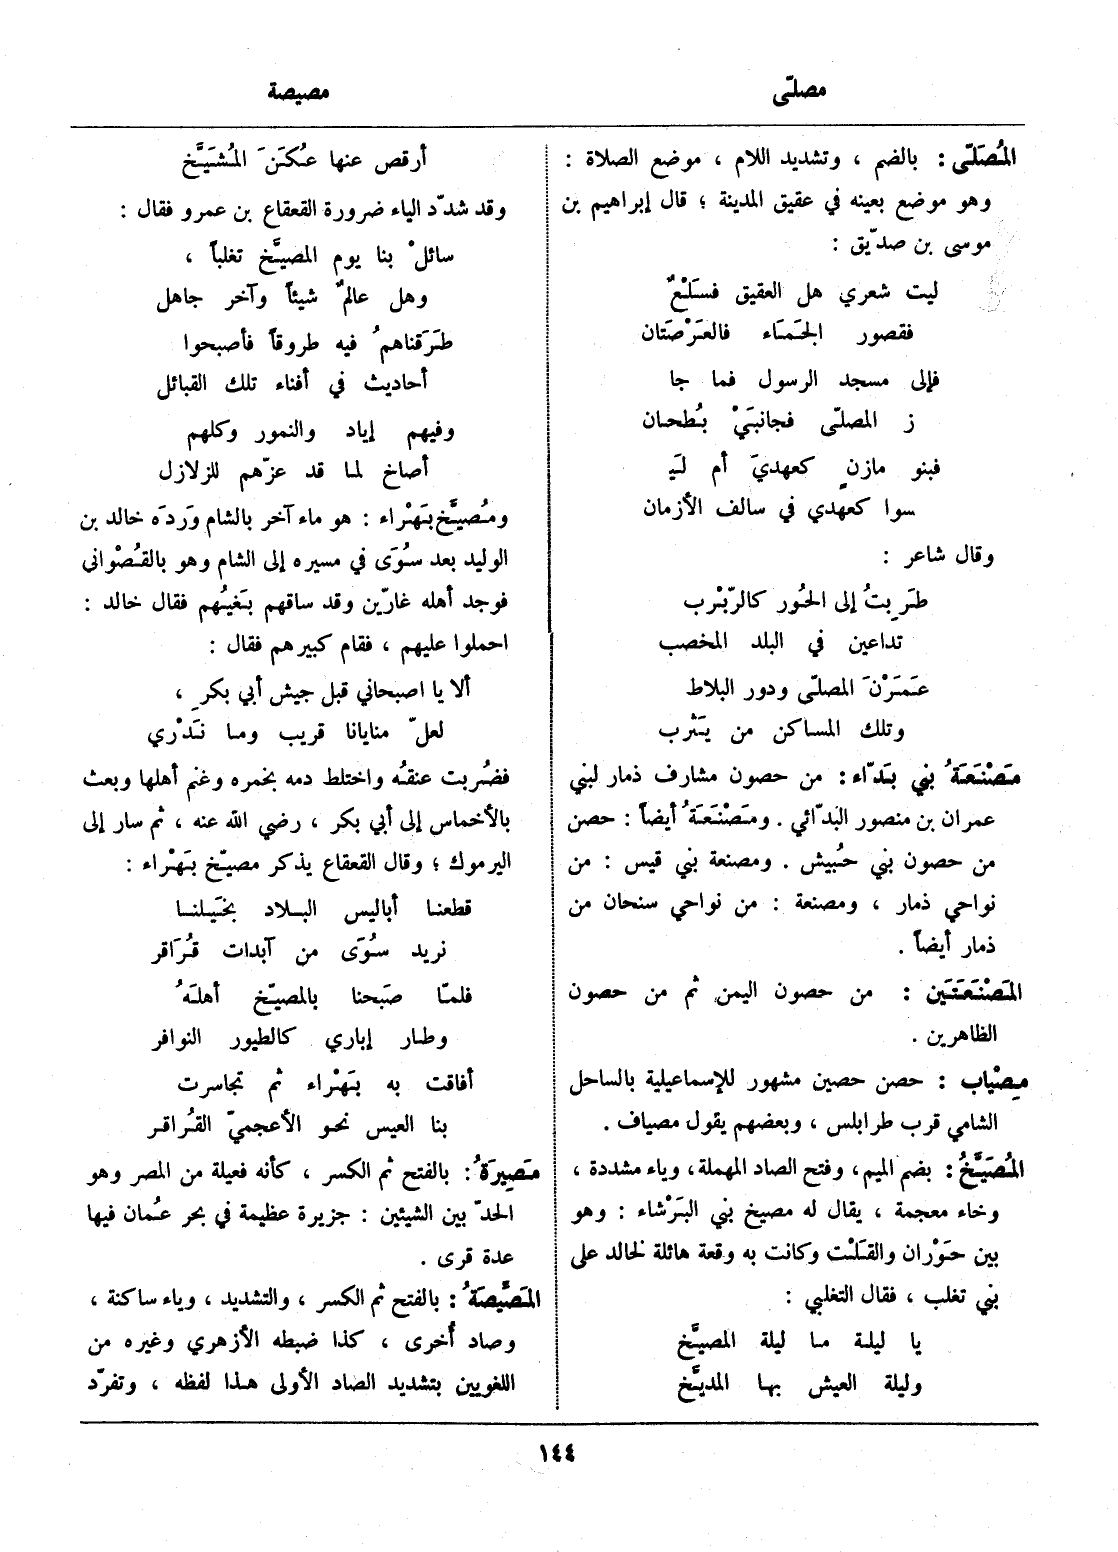 مصلّى
مصيصة
المُصَلّى : بالضم ، وتشديد اللام ، موضع الصلاة :
وهو موضع بعينه في عقيق المدينة ؛ قال إبراهيم بن
موسى بن صدّيق :
ليت شعري هل العقيق فسَلْعٌ
فقصور الجَمّاء فالعَرْصَتان
فإلى مسجد الرسول فما جا
ز المصلّى فجانبَيْ بُطحان
فبنو مازنٍ كعهديَ أم لَيـ
سوا كعهدي في سالف الأزمان
وقال شاعر :
طَرِبتُ إلى الحُور كالرّبْرب
تداعين في البلد المخصب
عَمَرْنَ المصلّى ودور البلاط
وتلك المساكن من يَثْرب
مَصْنَعَةُ بني بَدّاء : من حصون مشارف ذمار لبني
عمران بن منصور البَدّائي . ومَصْنَعَةُ أيضاً : حصن
من حصون بني حُبيش . ومصنعة بني قيس : من
نواحي ذمار ، ومصنعة : من نواحي سنحان من
ذمار أيضاً .
المَصْنَعَتَين : من حصون اليمن ثم من حصون
الظاهرين .
مِصْياب : حصن حصين مشهور للإسماعيلية بالساحل
الشامي قرب طرابلس ، وبعضهم يقول مصياف .
المُصَيَّخُ : بضم الميم ، وفتح الصاد المهملة ، وياء مشددة ،
وخاء معجمة ، يقال له مصيخ بني البَرْشاء : وهو
بين حَوْران والقَلْت وكانت به وقعة هائلة لخالد على
بني تغلب ، فقال التغلبي :
يا ليلة ما ليلة المصيَّخ
وليلة العيش بها المديَّخ
أرقص عنها عُكَنَ المُشَيَّخ
وقد شدّد الياء ضرورة القعقاع بن عمرو فقال :
سائلْ بنا يوم المصيَّخ تغلباً ،
وهل عالمٌ شيئاً وآخر جاهل
طَرَقناهمُ فيه طروقاً فأصبحوا
أحاديث في أفناء تلك القبائل
وفيهم إياد والنمور وكلهم
أصاخ لما قد عزّهم للزلازل
ومُصيَّخ بَهْراء : هو ماء آخر بالشام وَرَدَه خالد بن
الوليد بعد سُوَى في مسيره إلى الشام وهو بالقُصْواني
فوجد أهله غارّين وقد ساقهم بَغيُهم فقال خالد :
احملوا عليهم ، فقام كبيرهم فقال :
ألا يا اصبحاني قبل جيش أبي بكرٍ ،
لعلّ منايانا قريب وما نَدْري
فضُربت عنقُه واختلط دمه بخمره وغنم أهلها وبعث
بالأخماس إلى أبي بكر ، رضي الله عنه ، ثم سار إلى
اليرموك ؛ وقال القعقاع يذكر مصيّخ بَهْراء :
قطعنا أباليس البلاد بخَيلنا
نريد سُوَى من آبدات قُرَاقر
فلمّا صَبحنا بالمصيّخ أهلَهُ
وطار إباري كالطيور النوافر
أفاقت به بَهْراء ثم تجاسرت
بنا العيس نحو الأعجميّ القُراقر
مَصِيرَةُ : بالفتح ثم الكسر ، كأنه فعيلة من المصر وهو
الحدّ بين الشيئين : جزيرة عظيمة في بحر عُمان فيها
عدة قرى .
المَصِّيصَةُ : بالفتح ثم الكسر ، والتشديد ، وياء ساكنة ،
وصاد أُخرى ، كذا ضبطه الأزهري وغيره من
اللغويين بتشديد الصاد الأولى هذا لفظه ، وتفرّد
١٤٤